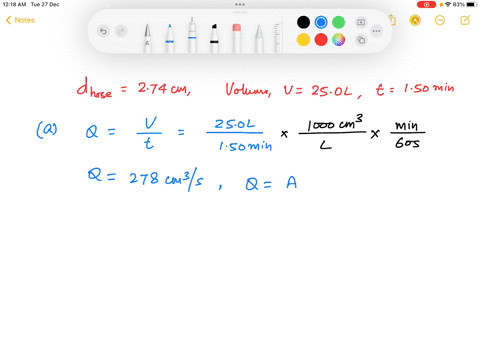 12:18 AM Tue 27 Dec
83%
Notes
d hose = 2.74 cm, Volume, V = 25.0L, t = 1.50 min
(a) Q = V/t = 25.0L/1.50 min × 1000 cm³/L × min/60s
Q = 278 cm³/s, Q = A